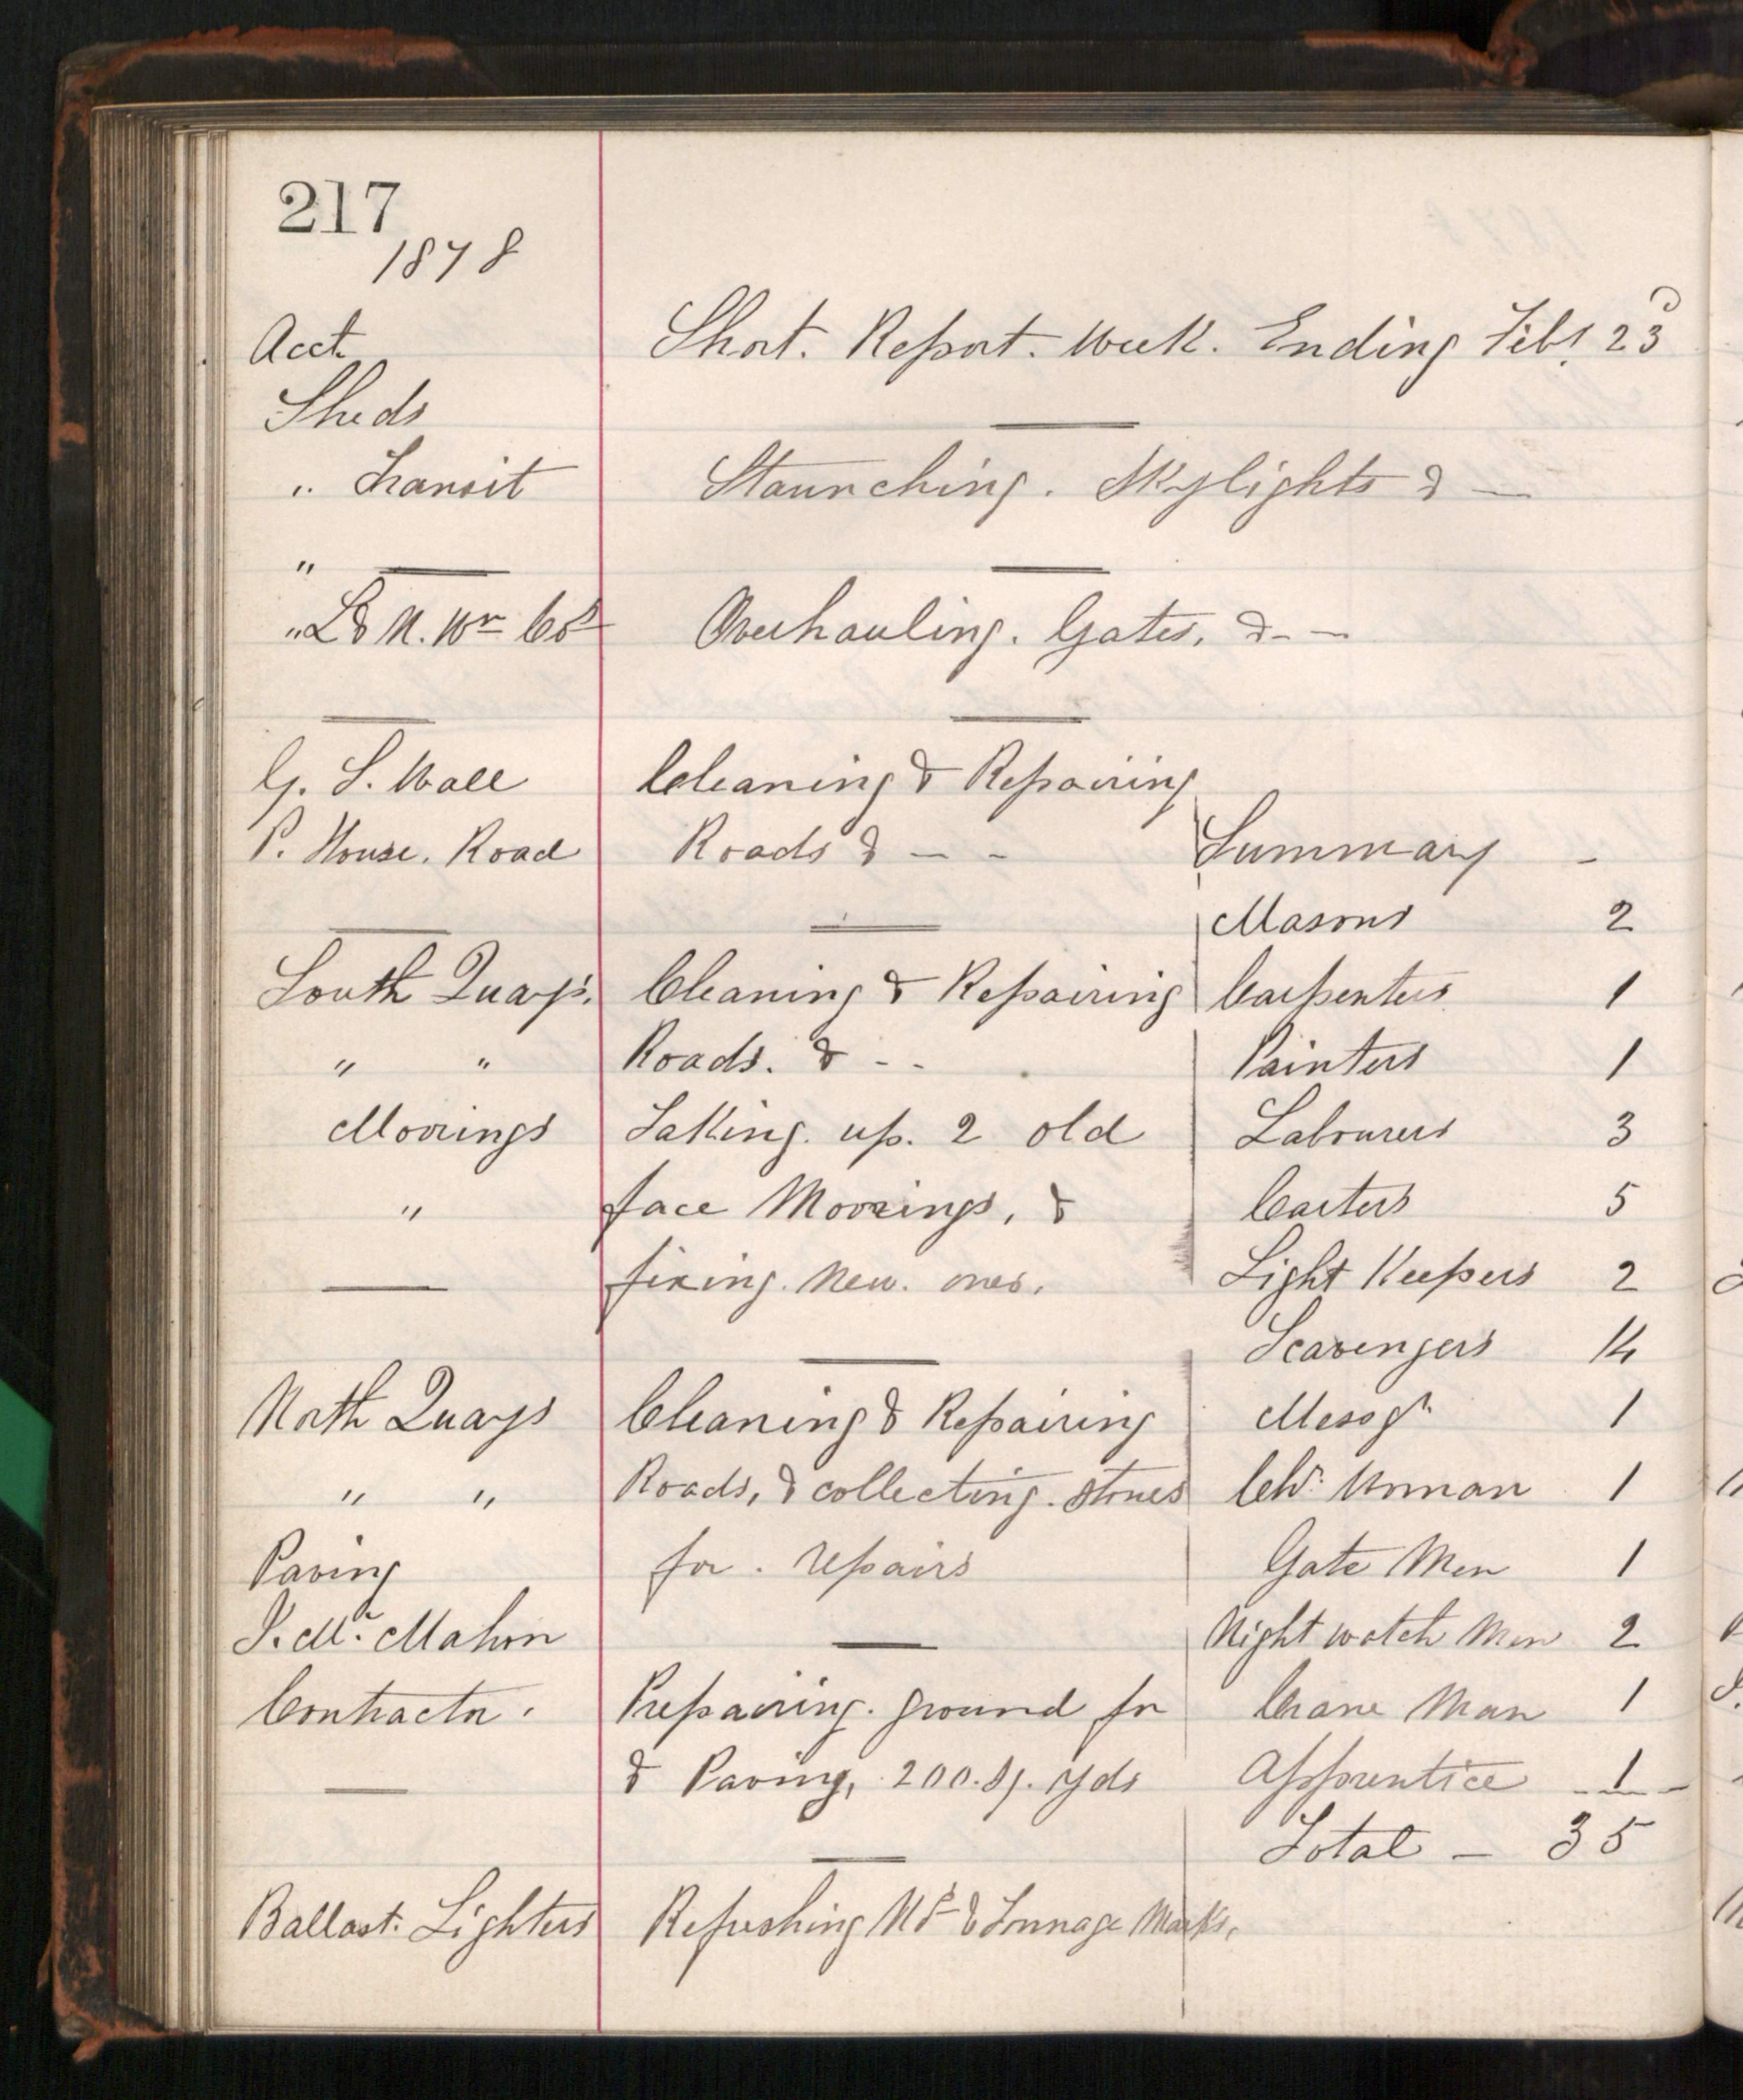 217
1878
Acct Short. Report. Week. Ending Feby. 23
Sheds
" Transit Staunching. Skylights & —
" —
" L & N. Wn Cos Overhauling. Gates, & - —
G. S. Wall Cleaning & Repairing
P. House. Road Roads & — - Summary -
Masons 2
South Quays. Cleaning & Repairing Carpenters 1
" " Roads. & - - Painters 1
Moorings Taking. up. 2 old Labourers 3
" face Moorings, & Carters 5
fixing. New. ones. Light Keepers 2
Scavengers 14
North Quays Cleaning & Repairing Messgr 1
" " Roads, & collecting. stones Chr. Woman 1
Paving for. repairs Gate Men 1
J. Mc. Mahon Night watch Men 2
Contractor. Preparing. ground for Crane Man 1
& Paving, 200. Sq. yds Apprentice 1
Total — 35
Ballast. Lighters Refreshing Nos & Tonnage Marks.